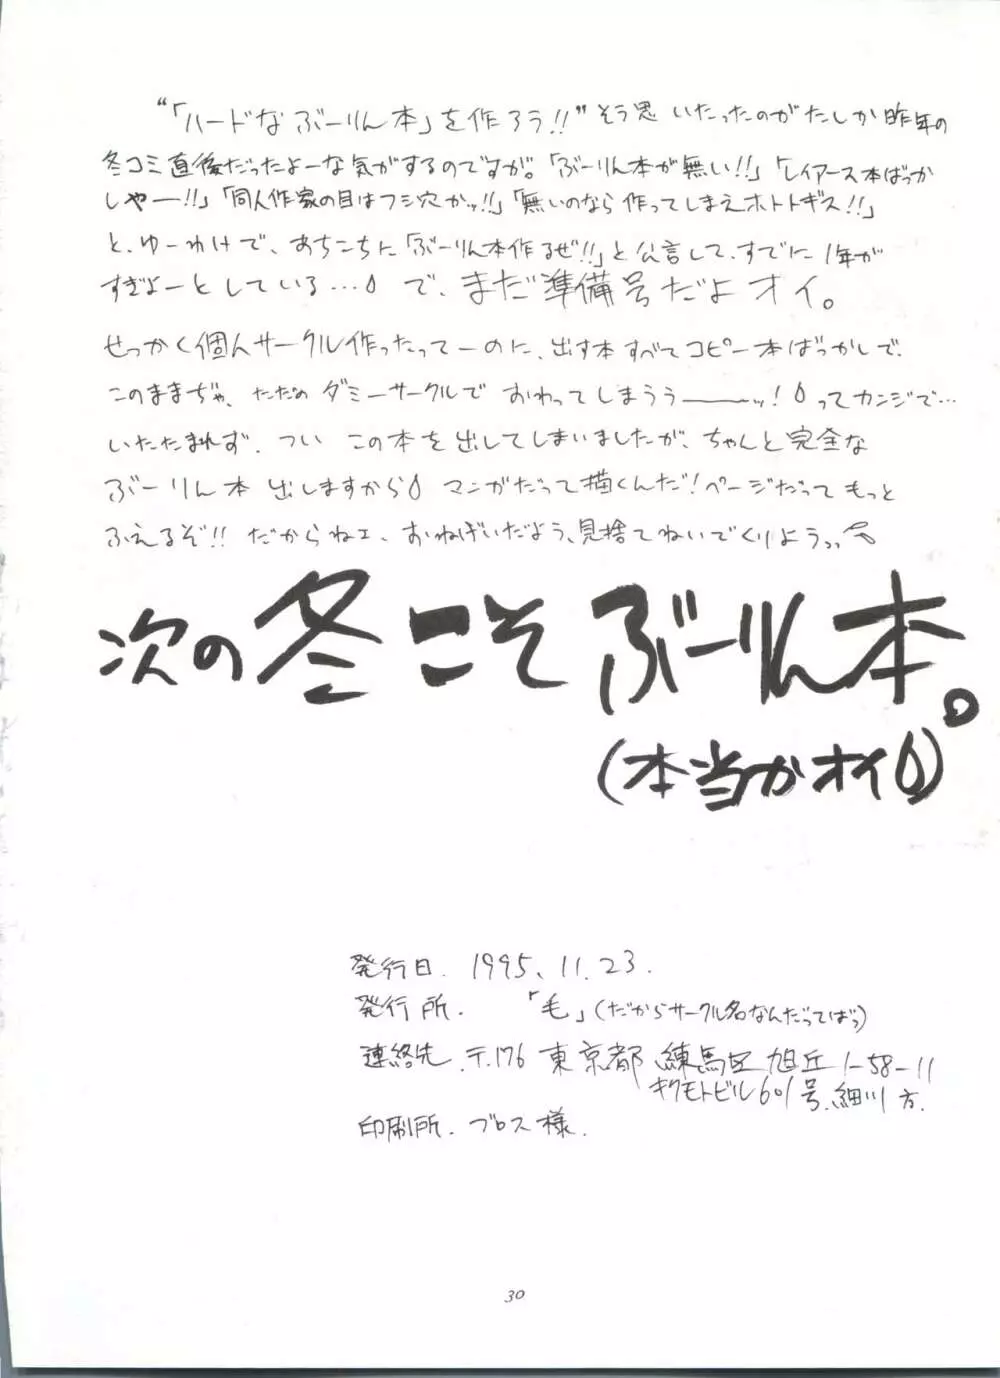 “「ハードなぶーりん本」を作ろう!!”そう思いたったのがたしか昨年の
冬コミ直後だったよーな気がするのですが。「ぶーりん本が無い!!」「レイアース本ばっか
しやー!!」「同人作家の目はフシ穴かッ!!」「無いのなら作ってしまえホトトギス!!」
と、ゆーわけで、あちこちに「ぶーりん本作るぜ!!」と公言して、すでに1年が
すぎよーとしている…で、まだ準備号だよオイ。
せっかく個人サークル作ったってーのに、出す本すべてコピー本ばっかしで、
このままぢゃ、ただのダミーサークルでおわってしまうぅーッ!ってカンジで…
いたたまれず、ついこの本を出してしまいましたが、ちゃんと完全な
ぶーりん本出しますから マンガだって描くんだ!ページだってもっと
ふえるぞ!!だからねェ、おねげいだよう、見捨てねいでくりようっっ
次の冬こそぶーりん本。
(本当かオイ)
発行日. 1995. 11. 23.
発行所. 「毛」(だからサークル名なんだってばっ)
連絡先. 〒176 東京都練馬区旭丘1-58-11
キクモトビル601号. 細川方.
印刷所. ブロス様.
30